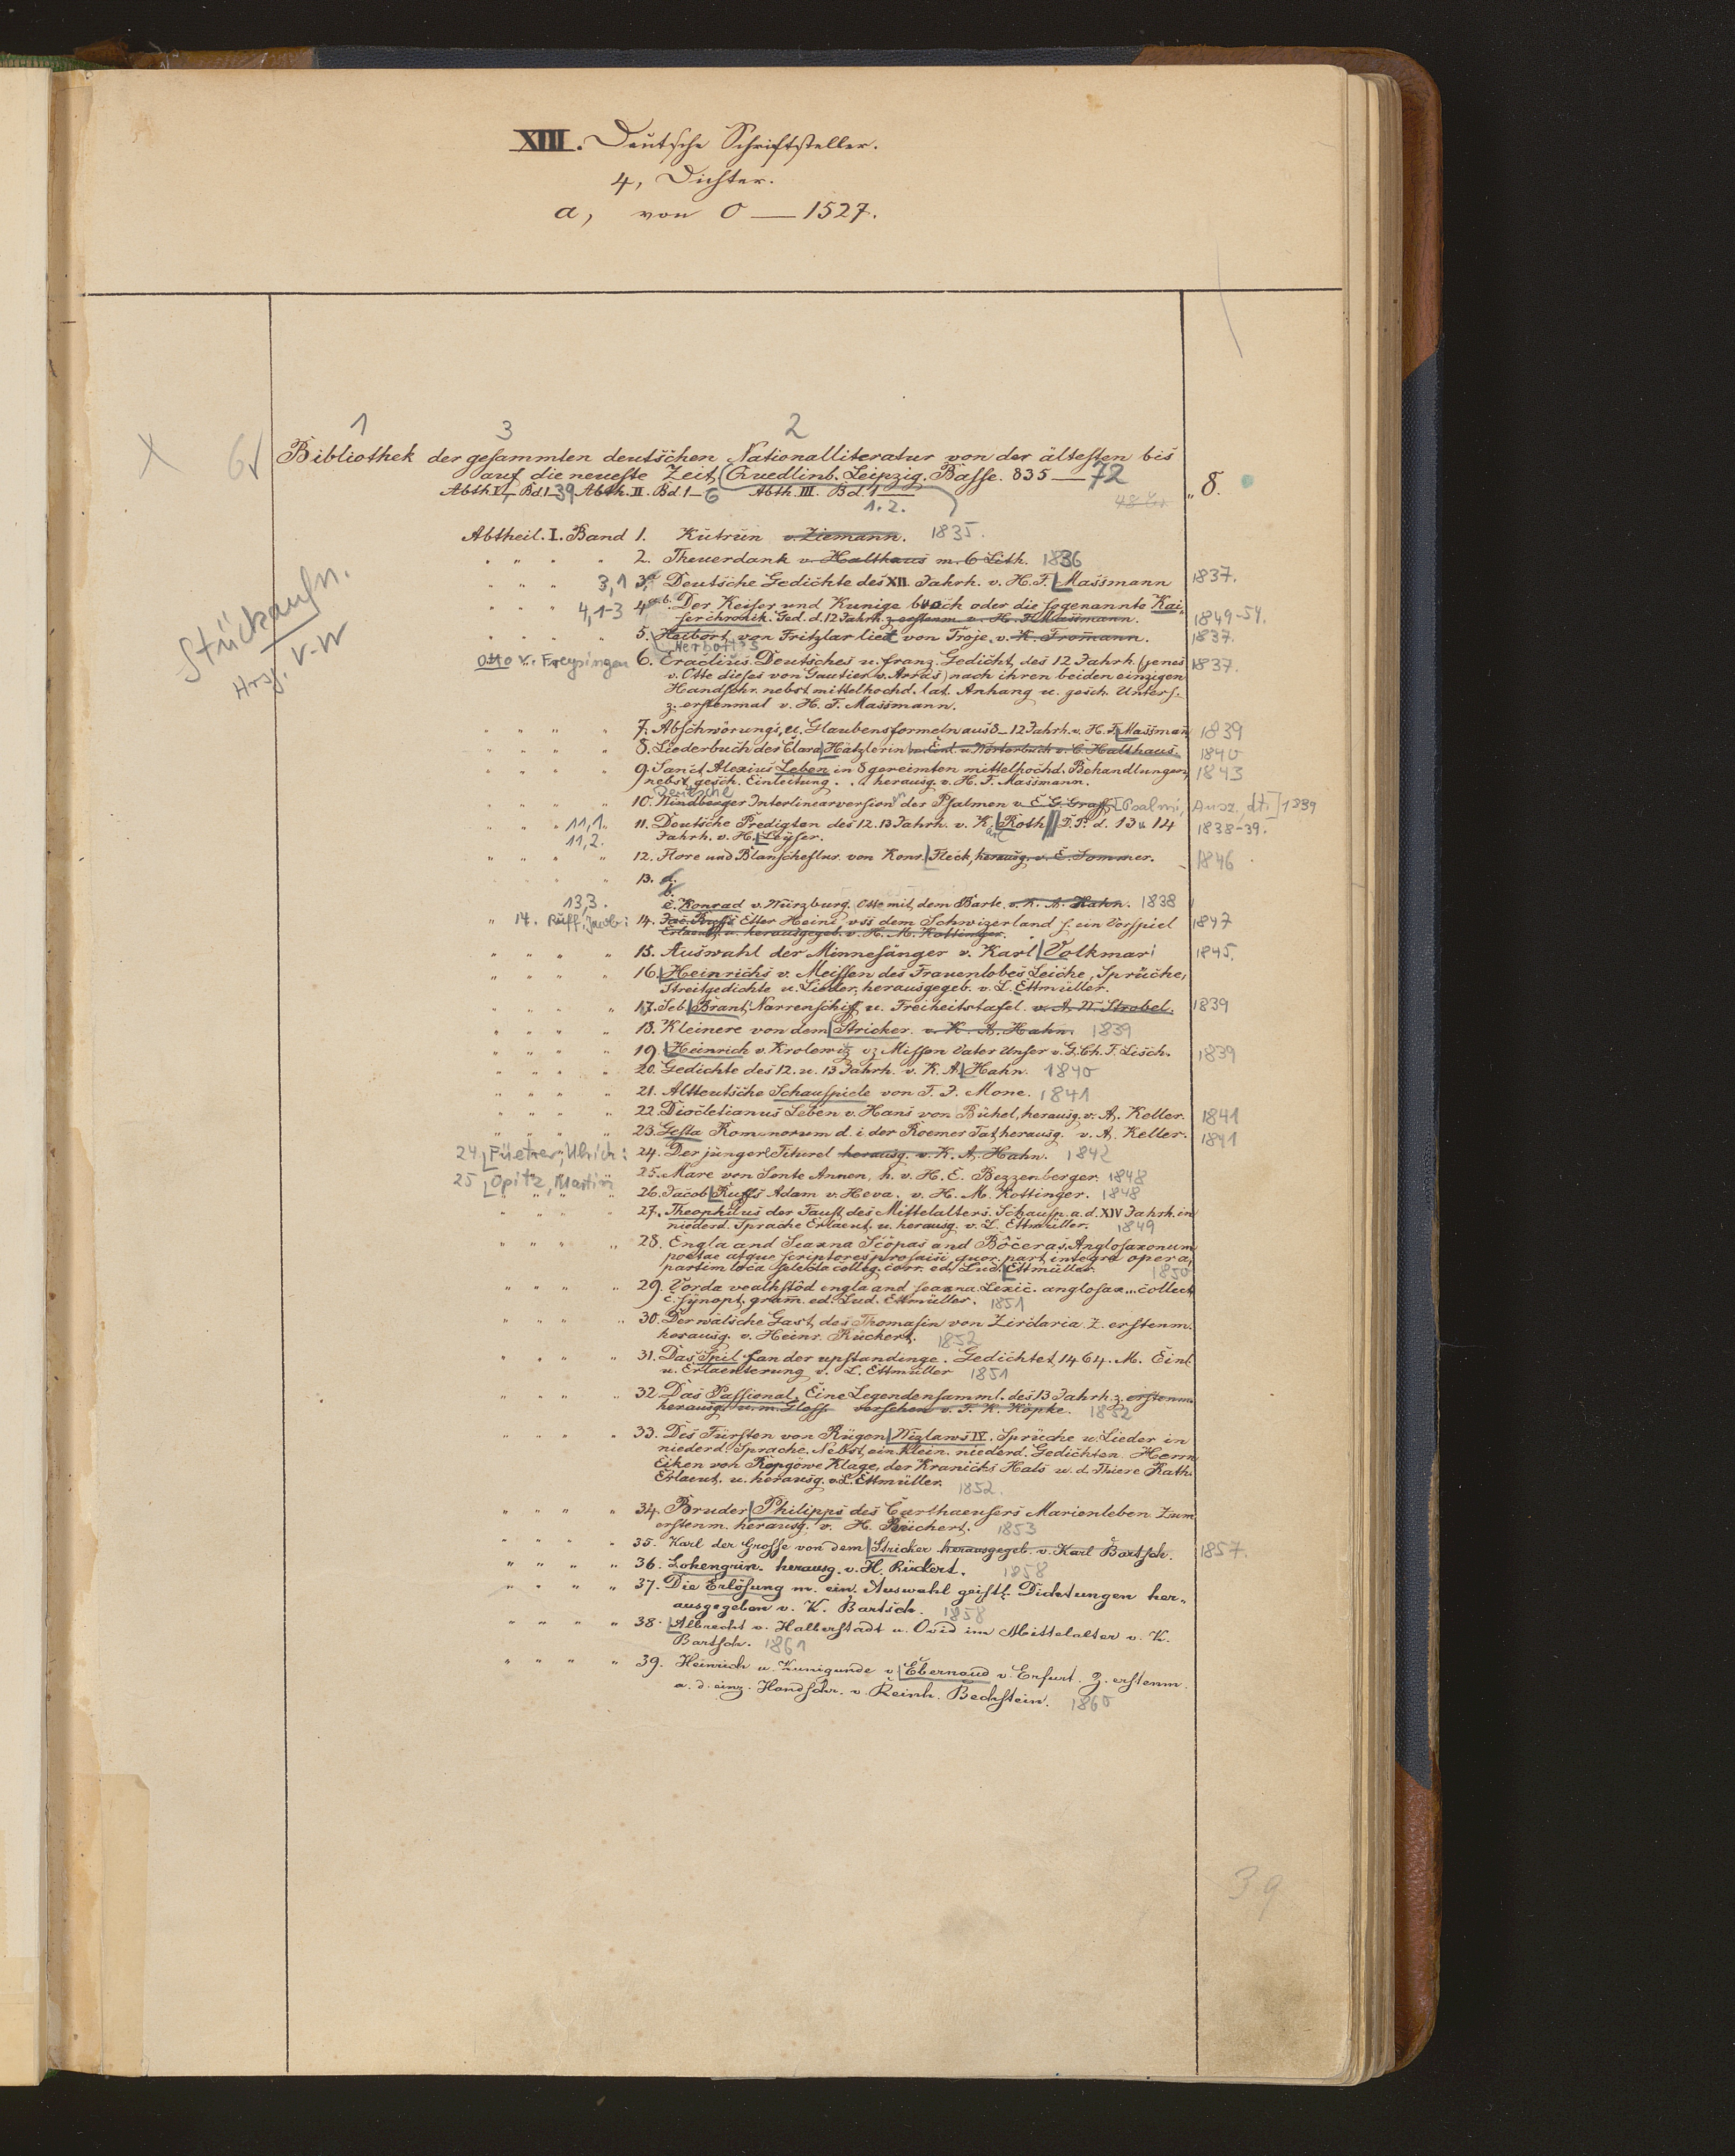 XIII. Deutsche Schriftsteller.
4, Dichter.
a, von 0 — 1527.
1 3 2
X 6
Bibliothek der gesammten deutschen Nationalliteratur von der ältesten bis
auf die neueste Zeit (Quedlinb. Leipzig. Basse. 835—72 „ 8.
Abth. I. Bd. 1–39 Abth. II. Bd. 1–6 Abth. III. Bd. 1—
1.2.
Stückaufn.
Hrsg. V-W
Abtheil. I. Band 1. Kutrun v. Ziemann. 1835.
" " " " 2. Theuerdank v. Halthaus m. 6 Lith. 1836
" " " 3,1 3a Deutsche Gedichte des XII. Jahrh. v. H. F. Massmann 1837.
" " " 4,1-3 4 a.b. Der Keiser und Kunige buoch oder die sogenannte Kai„
serchronik. Ged. d. 12 Jahrh. z. erstenm. v. H. F. Massmann. 1849-54.
" " " " 5. Heibort von Fritzlar liet von Troje v. K. Fromann. 1837.
Herbort's
Otto v. Freysingen 6. Eraclius. Deutsches u. franz. Gedicht des 12 Jahrh. (jenes 1837.
v. Otte dieses von Gautier v. Arras) nach ihren beiden einzigen
Handschr. nebst mittelhochd. lat. Anhang u. gesch. Unters.
z. erstenmal v. H. F. Massmann.
" " " " 7. Abschwörungs, u. Glaubensformeln aus 8–12 Jahrh. v. H. F. Massmañ 1839
" " " " 8. Liederbuch der Clara Hätzlerin m. Einl. u. Wörterbuch v. C. Halthaus. 1840
" " " " 9. Sanct Alexius Leben in 8 gereimten mittelhochd. Behandlungen, 1843
nebst gesch. Einleitung. herausg. v. H. F. Massmann.
Deutsche
" " " " 10. Windberger Interlinearversion der Psalmen v. E. G. Graff [Psalmi, Ausz., dt.] 1839
" " " 11,1. 11. Deutsche Predigten des 12. 13 Jahrh. v. K. Roth // D. P. d. 13 u 14 1838-39.
11,2. Jahrh. v. H. Leyser.
" " " " 12. Flore und Blanscheflur von Konr. Fleck, herausg. v. E. Sommer. 1846
" " 13. a.
b.
13,3. c. Konrad v. Würzburg. Otte mit dem Barte v. K. A. Hahn. 1838
" 14. Ruff, Jacob: 14. Jac. Ruffs Etter Heini uss dem Schwizerland s. ein Vorspiel 1847
Erlaeut. u. herausgegeb. v. H. M. Kottinger.
" " " " 15. Auswahl der Minnesänger v. Karl Volkmar 1845.
" " " " 16. Heinrichs v. Meissen des Frauenlobes Leiche, Sprüche,
Streitgedichte u. Lieder, herausgegeb. v. L. Ettmüller.
" " " " 17. Seb. Brant, Narrenschiff u. Freiheitstafel v. A. W. Strobel. 1839
" " " " 18. Kleinere von dem Stricker v. K. A. Hahn. 1839
" " " " 19. Heinrich v. Krolewiz uz Missen Vater Unser v. G. Ch. F. Lisch. 1839
" " " " 20. Gedichte des 12. u. 13 Jahrh. v. K. A. Hahn. 1840
" " " " 21. Altteutsche Schauspiele von F. J. Mone. 1841
" " " " 22. Diocletianus Leben v. Hans von Bühel, herausg. v. A. Keller. 1841
" " " " 23. Gesta Romanorum d. i. der Roemer Tat herausg. v. A. Keller. 1841
24. Füetrer, Ulrich: 24. Der jüngere Titurel herausg. v. K. A. Hahn. 1842
25 Opitz, Martin 25. Mare von Sente Annen, h. v. H. E. Bezzenberger. 1848
" " " " 26. Jacob Ruffs Adam v. Heva. v. H. M. Kottinger. 1848
" " " " 27. Theophilus der Faust des Mittelalters. Schausp. a. d. XIV Jahrh. in
niederd. Sprache Erlaeut. u. herausg. v. L. Ettmüller. 1849
" " " " 28. Engla and Seaxna Scôpas and Bôceras. Anglosaxonum
poetae atque scriptores prosaici quor. part. integra opera,
partim loca selecta colleg. corr. ed. Lud. Ettmüller. 1850
" " " " 29. Vorda vealhstôd engla and seaxna. Lexic. anglosax... collect.
c. synopt. gram̄. ed. Lud. Ettmüller. 1851
" " " " 30. Der wälsche Gast des Thomasin von Zirclaria. Z. erstenm.
herausg. v. Heinr. Rückert. 1852
" " " " 31. Das Spil fan der upstandinge. Gedichtet 1464. M. Einl.
u. Erlaeuterung v. L. Ettmüller 1851
" " " " 32. Das Passional, Eine Legendensamml. des 13 Jahrh. z. erstenm.
herausg. u. m. Gloss. versehen v. F. K. Köpke. 1852
" " " " 33. Des Fürsten von Rügen Wizlaws IV. Sprüche u. Lieder in
niederd. Sprache. Nebst ein. klein. niederd. Gedichten. Herrn
Eiken von Repgowe Klage, der Kranichs Hals u. d. Thiere Rath.
Erlaeut. u. herausg. v. L. Ettmüller. 1852.
" " " " 34. Bruder Philipps des Carthaeusers Marienleben. Zum
erstenm. herausg. v. H. Rückert. 1853
" " " " 35. Karl der Grosse von dem Stricker herausgegeb. v. Karl Bartsch. 1857.
" " " " 36. Lohengrin. herausg. v. H. Rückert. 1858
" " " " 37. Die Erlösung m. ein. Auswahl geistl. Dichtungen her„
ausgegeben v. K. Bartsch. 1858
" " " " 38. Albrecht v. Halberstadt u. Ovid im Mittelalter v. K.
Bartsch. 1861
" " " " 39. Heinrich u. Kunigunde v. Ebernand v. Erfurt. Z. erstenm.
a. d. einz. Handschr. v. Reinh. Bechstein. 1860
39